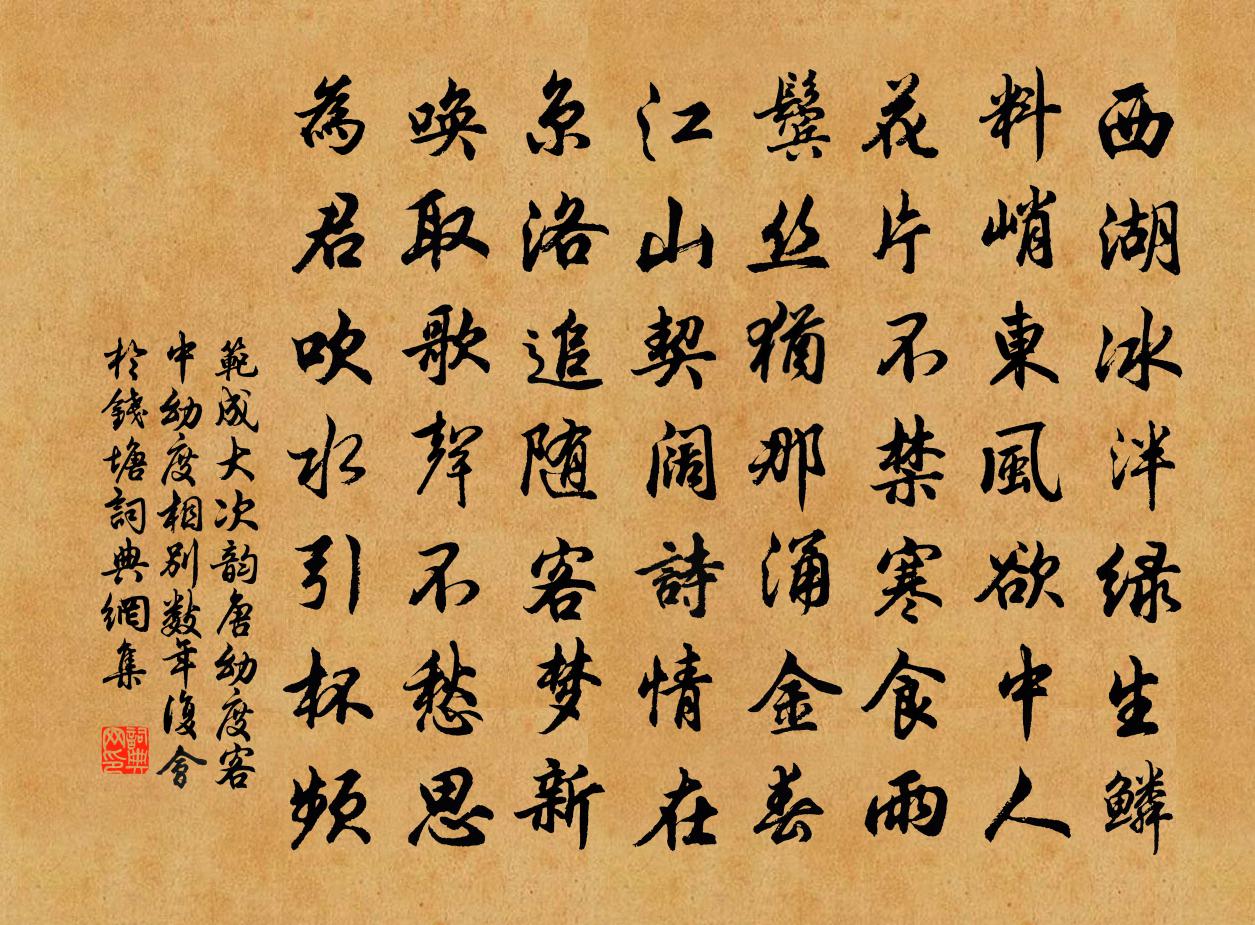 西湖冰泮绿生鳞
料峭東風欲中人
花片不禁寒食雨
鬓丝猶那涌金春
江山契阔詩情在
京洛追随客梦新
唤取歌聲不愁思
為君吹水引杯频
範成大次韵唐幼度客
中幼度相别数年復會
於錢塘詞典網集
詞典
网印